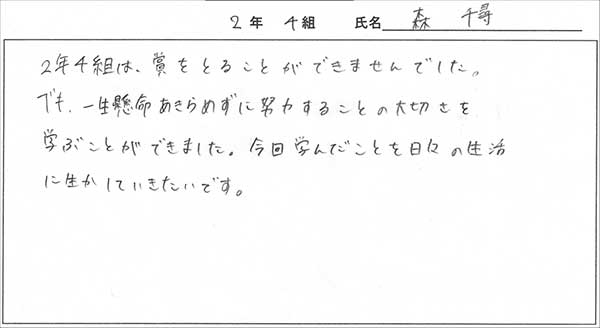 2年 4組 氏名 森 千尋
2年4組は、賞をとることができませんでした。
でも、一生懸命あきらめずに努力することの大切さを
学ぶことができました。今回学んだことを日々の生活
に生かしていきたいです。